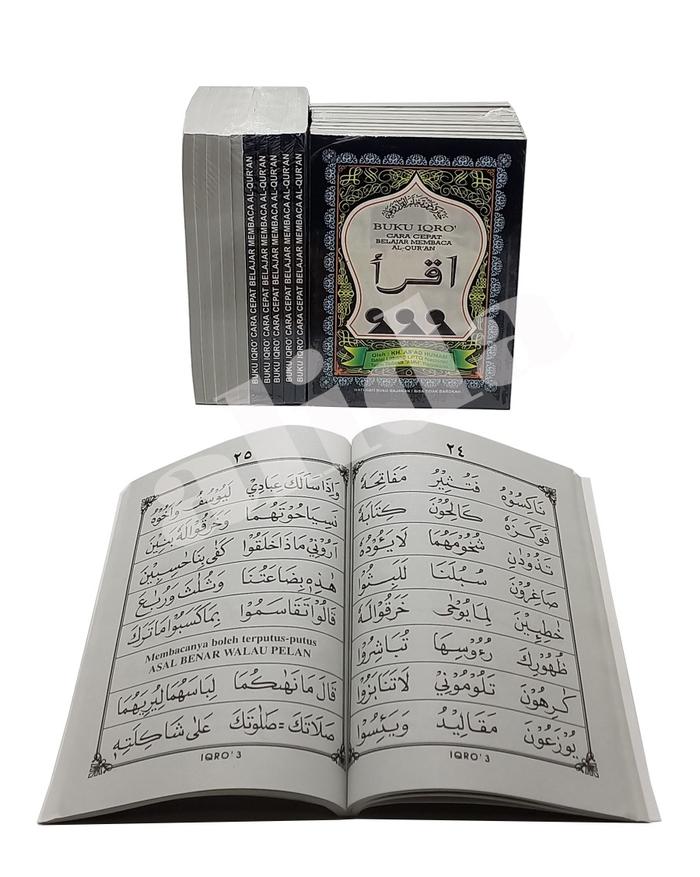 BUKU IQRO' CARA CEPAT BELAJAR MEMBACA AL-QUR'AN
BUKU IQRO' CARA CEPAT BELAJAR MEMBACA AL-QUR'AN
BUKU IQRO' CARA CEPAT BELAJAR MEMBACA AL-QUR'AN
BUKU IQRO' CARA CEPAT BELAJAR MEMBACA AL-QUR'AN
BUKU IQRO' CARA CEPAT BELAJAR MEMBACA AL-QUR'AN
BUKU IQRO'
CARA CEPAT
BELAJAR MEMBACA
AL-QUR'AN
اقرأ
Oleh : KH. AS'AD HUMAM
٢٤
نَاكِسُوْهُ فَتُثِيْرُ مَفَاتِحَهُ
فَوَكَزَهُ كَالِحُوْنَ كِتَابَهُ
تَذُوْدٰنِ شُحُوْمَهُمَا لَايَؤُدُهُ
صَاغِرُوْنَ سُبُلَنَا لَلَبِثُوْا
خٰطِـِٕيْنَ لِمَا يُوْحٰى خَرَقُوْالَهُ
ظُهُوْرِكَ رُءُوْسِهَا تُبَاشِرُوْا
كٰرِهُوْنَ تَلُوْمُوْنِيْ لَاتَنَابَزُوْا
يُوْزَعُوْنَ مَقَالِيْدُ وَيَئِسُوْا
IQRO' 3
٢٥
وَاِذَاسَاَلَكَ عِبَادِيْ لَيُوْسُفُ وَاَخُوْهُ
نَسِيَاحُوْتَهُمَا وَخَرَقُوْالَهُ بَنِيْنَ
اَرُوْنِيْ مَاذَاخَلَقُوْا كَفٰى بِنَاحٰسِبِيْنَ
هٰذِهِ بِضَاعَتُنَا وَثُلٰثَ وَرُبٰعَ
قَالُوْاتَقَاسَمُوْا بِمَاكَسَبُوْامَاتَرَكَ
Membacanya boleh terputus-putus
ASAL BENAR WALAU PELAN
قَالَ مَانَهٰىكُمَا لِبَاسَهُمَالِيُرِيَهُمَا
صَلَاتَكَ = صَلٰوتَكَ عَلٰى شَاكِلَتِهِ
IQRO' 3